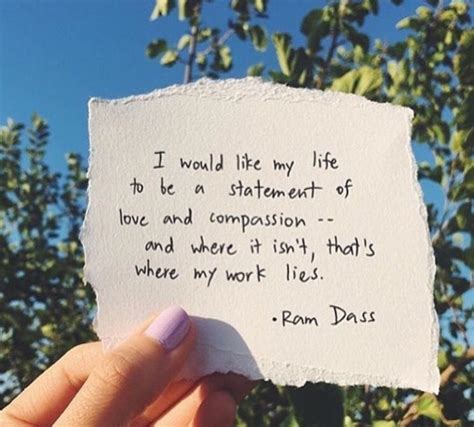 I would like my life
to be a statement of
love and compassion --
and where it isn't, that's
where my work lies.
• Ram Dass